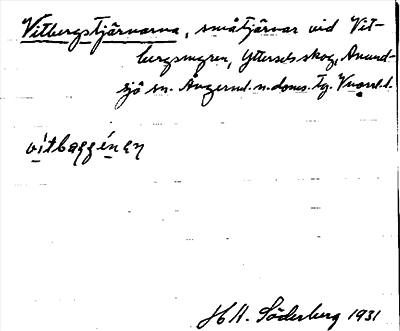 Vitbergstjärnarna, småtjärnar vid Vit-
bergsmyren, Ytterselsskog, Anund-
sjö sn. Ångerml. n. doms. tg. Vnorrl. l.
H A. Söderberg 1931